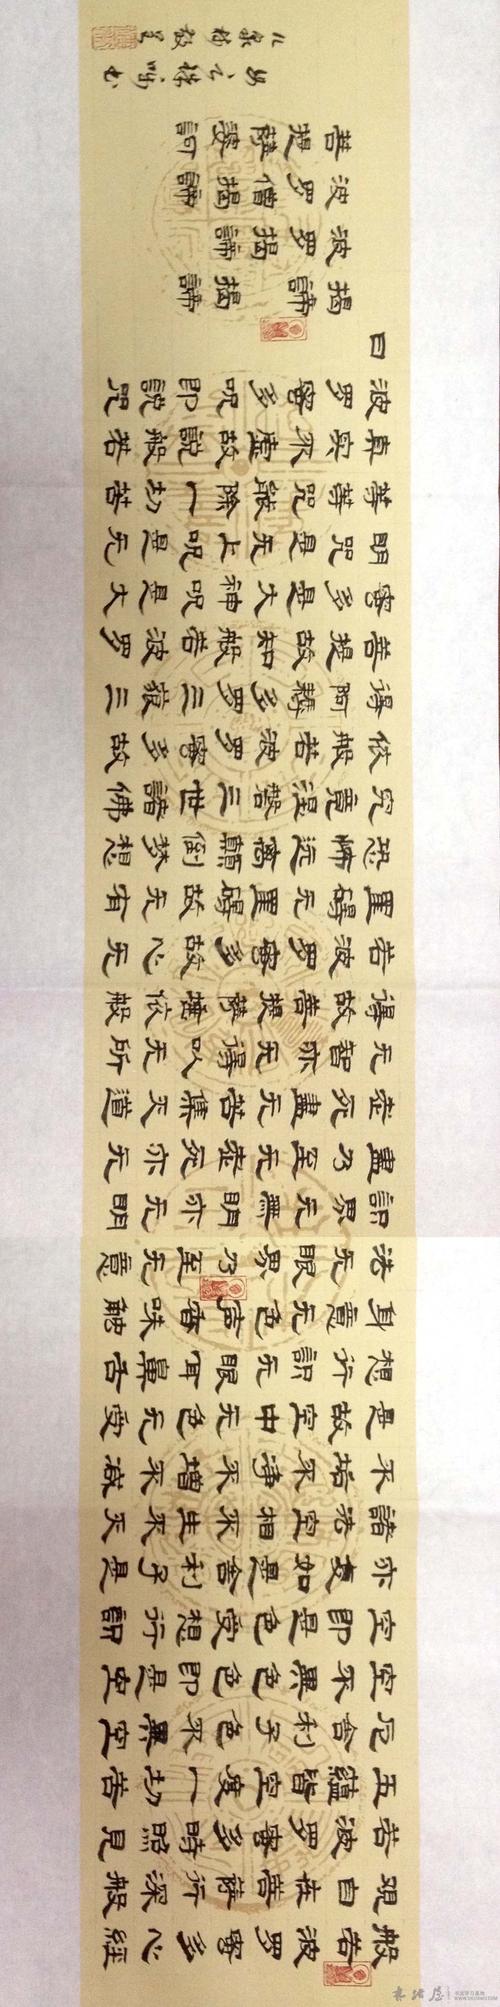 般若波罗密多心經
观自在菩萨行深般
若波罗密多時照見
五蕴皆空度一切苦
厄舍利子色不異空
空不異色色即是空
空即是色受想行識
亦复如是舍利子是
諸法空相不生不灭
不垢不淨不增不减
是故空中无色无受
想行識无眼耳鼻舌
身意无色声香味触
法无眼界乃至无意
識界无無明亦无明
盡乃至无老死亦无
老死盡无苦集灭道
无智亦无得以无所
得故菩提萨埵依般
若波罗密多故心无
罣碍无罣碍故无有
恐怖远离顛倒梦想
究竟涅槃三世諸佛
依般若波罗密多故
得阿耨多罗三藐三
菩提故知般若波罗
密多是大神呪是大
明咒是无上呪是无
等等咒能除一切苦
真实不虚故說般若
波罗密多呪即說咒
曰
揭諦揭諦
波罗揭諦
波罗僧揭諦
菩提薩婆訶